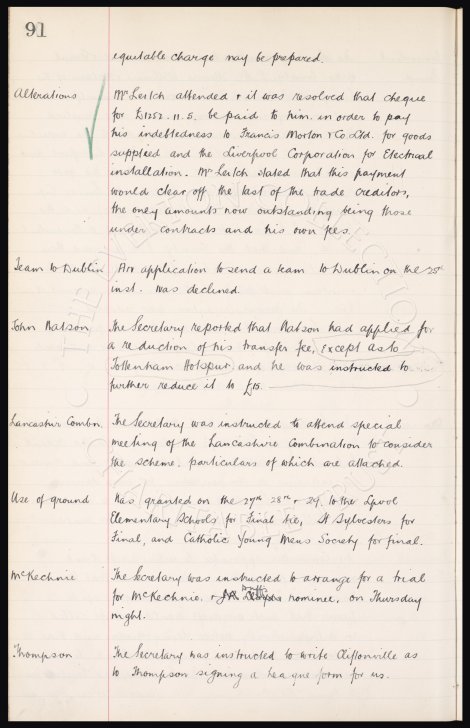 91
equitable charge may be prepared.
Alterations Mr Leitch attended & it was resolved that cheque
for £1252. 11. 5. be paid to him, in order to pay
his indebtedness to Francis Morton & Co. Ltd. for goods
supplied and the Liverpool Corporation for Electrical
installation. Mr Leitch stated that this payment
would clear off the last of the trade creditors,
the only amounts now outstanding being those
under contracts and his own fees.
Team to Dublin An application to send a team to Dublin on the 25th
inst. was declined.
John Watson The Secretary reported that Watson had applied for
a reduction of his transfer fee, except as to
Tottenham Hotspur, and he was instructed to
further reduce it to £15.
Lancashire Combn. The Secretary was instructed to attend special
meeting of the Lancashire Combination to consider
the scheme, particulars of which are attached.
Use of ground Was granted on the 27th 28th & 29. to the Lpool
Elementary Schools for Final tie, St Sylvesters for
Final, and Catholic Young Mens Society for final.
McKechnie The Secretary was instructed to arrange for a trial
for McKechnie, & nominee, on Thursday
night.
Thompson The Secretary was instructed to write Cliftonville as
to Thompson signing a League form for us.